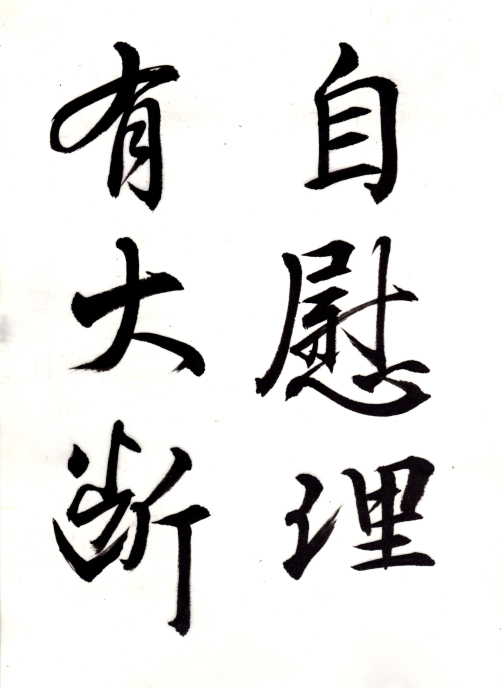 自慰理
有大断